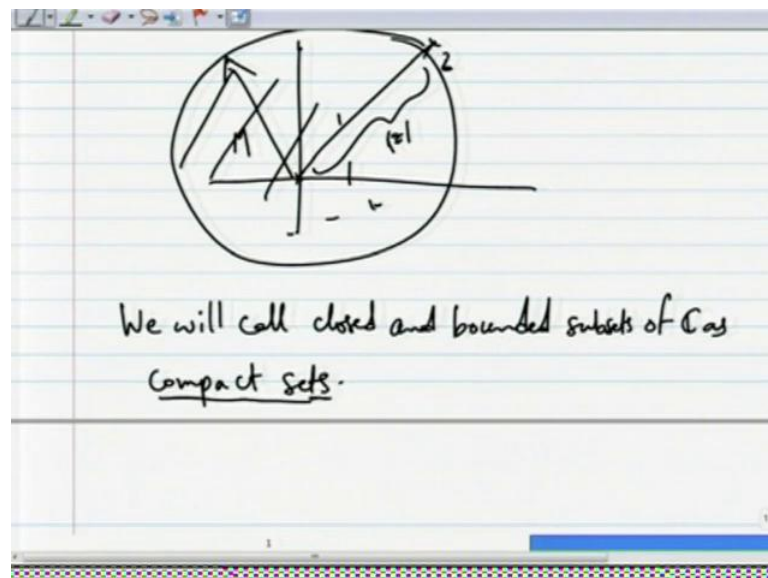 2
|z|
M
We will call closed and bounded subsets of ℂ as
compact sets.
1